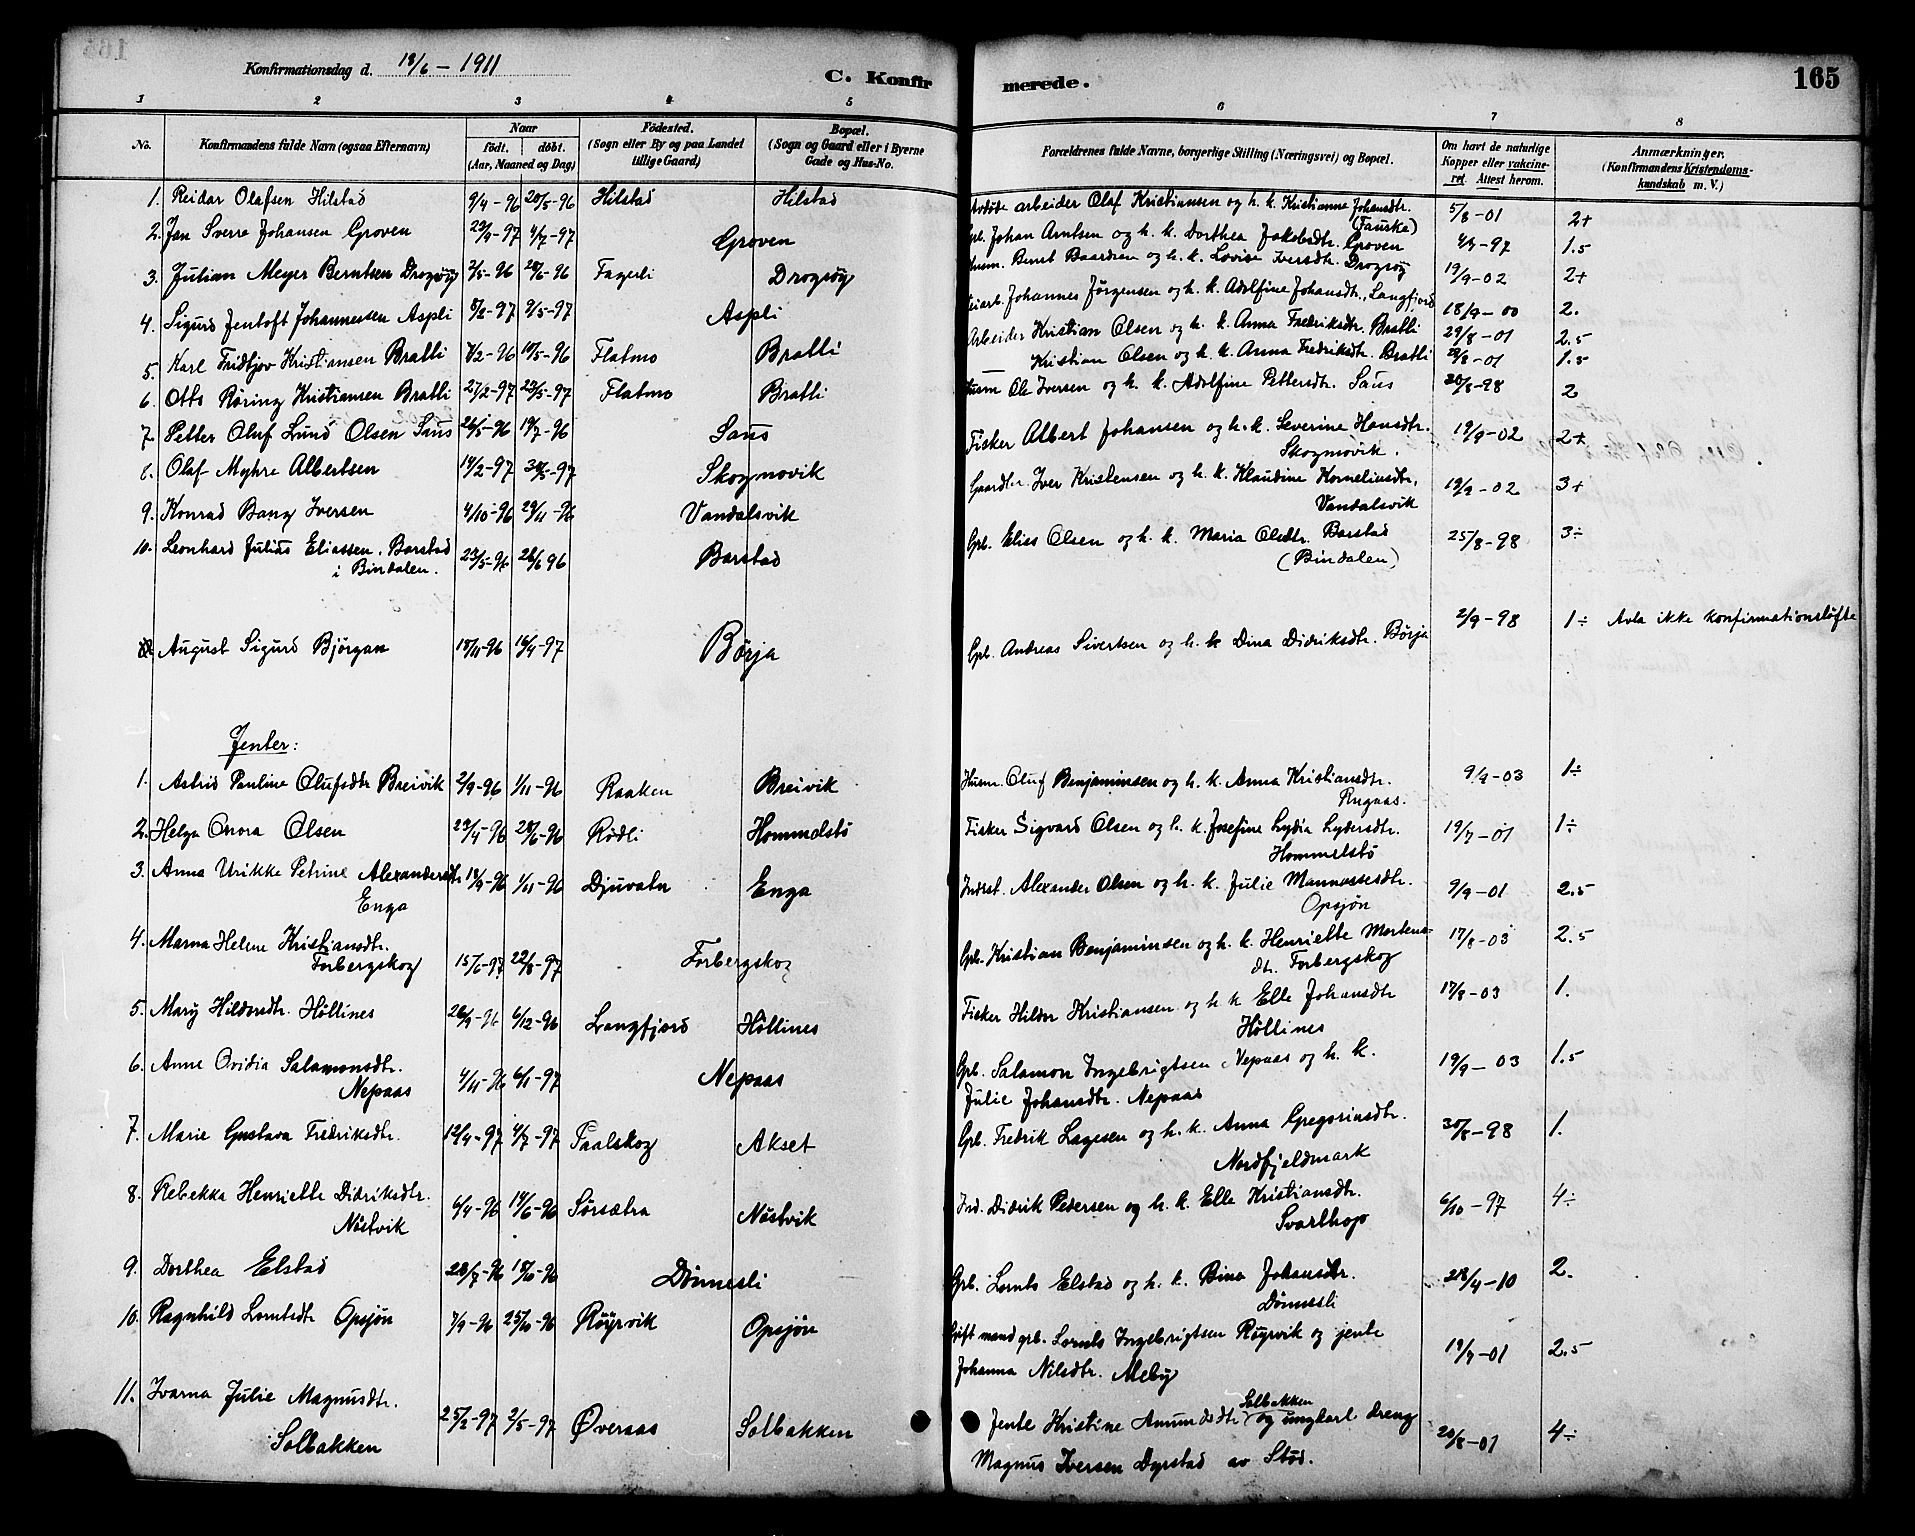 Konfirmationsdag d. 18/6 – 1911
C. Konfir
merede.
165
1 2 3 4 5 6 7 8
No.
Konfirmandens fulde Navn (ogsaa Efternavn)
Naar
født. døbt.
(Aar, Maaned og Dag)
Fødested.
(Sogn eller By og paa Landet
tillige Gaard)
Bopæl.
(Sogn og Gaard eller i Byerne
Gade og Hus-No.
Forældrenes fulde Navne, borgerlige Stilling (Næringsvei) og Bopæl.
Om havt de naturlige
Kopper eller vakcine-
ret. Attest herom.
Anmærkninger.
(Konfirmandens Kristendoms-
kundskab m. V.)
1. Reidar Olafsen Hilstad 9/4-96 20/5-96 Hilstad Hilstad arbeider Olaf Kristiansen og h. k. Kristianne Johansdtr. (Fauska) 5/8-01 2+
2. Jan Sverre Johansen Groven 23/4-97 4/7-97 Groven Gpb. Johan Arntsen og h. k. Dorthea Jakobsdtr. Groven 4/9-97 1.5
3. Julian Meyer Berntsen Drogsøy 2/5-96 28/6-96 Fagerli Drogsøy Husm. Bernt Baardsen og h. k. Lovise Iversdtr. Drogsøy 19/9-02 2+
4. Sigurd Jentoft Johannessen Aspli 8/2-97 9/5-97 Aspli Johannes Jørgensen og h. k. Adolfine Johansdtr., Langfjord 18/9-00 2.
5. Karl Fridtjov Kristiansen Bratli 7/2-96 10/5-96 Flatmo Bratli Arbeider Kristian Olsen og h. k. Anna Fredriksdtr. Bratli 29/8-01 2.5
6. Otto Røring Kristiansen Bratli 27/2-97 23/5-97 Flatmo Bratli Kristian Olsen og h. k. Anna Fredriksdtr. Bratli 29/8-01 1.5
7. Petter Oluf Lund Olsen Saus 26/5-96 19/7-96 Saus Husm Ole Iversen og h. k. Adolfine Pettersdtr. Saus 30/8-98 2
8. Olaf Myhre Albertsen 14/2-97 30/5-97 Skogmovik Fisker Albert Johansen og h. k. Severine Hansdtr. Skogmovik. 19/9-02 2+
9. Konrad Bang Iversen 4/10-96 29/11-96 Vandalsvik Gaardbr. Iver Kristensen og h. k. Klaudine Korneliusdtr, Vandalsvik 19/9-02 3+
10. Leonhard Julius Eliassen, Barstad i Bindalen. 23/5-96 28/6 96 Barstad Gpb. Elias Olsen og h. k. Maria Olsdtr. Barstad (Bindalen) 25/8-98 3÷
August Sigurd Bjørgan 18/11-96 16/4-97 Børja Gpb. Andreas Sivertsen og h. k Dina Didriksdtr. Børja 2/9-98 1÷ Avla ikke konfirmationsløfte
Jenter:
1. Astrid Pauline Olufsdtr Breivik 2/9-96 1/11-96 Raaken Breivik Husm. Oluf Benjaminsen og h. k. Anna Kristiansdtr. Rugaas. 9/9-03 1÷
2. Helga Onora Olsen 29/4-96 28/6-96 Rødli Hommelstø Fisker Sigvard Olsen og h. k. Josefine Lydia Lydersdtr. Hommelstø 19/7-01 1÷
3. Anna Urikke Petrine Alexandersdtr Enga 18/9-96 1/11-96 Djuvatn Enga Inderst. Alexander Olsen og h. k. Julie Mannassesdtr. Opsjøn 9/9-01 2.5
4. Marna Helene Kristiansdtr. Forbergskog 15/6-97 22/8-97 Forbergskog Gpb. Kristian Benjaminsen og h. k. Henriette Mortens- dtr. Forbergskog 17/8-03 2.5
5. Mary Hildorsdtr. Høllines 26/9-96 6/12-96 Langfjord Høllines Fisker Hildor Kristiansen og h k Elle Johansdtr Høllines 17/8-03 1.
6. Anne Ovidia Salamonsdtr. Nepaas 4/11-96 6/1-97 Nepaas Gpb. Salamon Ingebrigtsen Nepaas og h. k. Julie Johansdtr. Nepaas 19/9-03 1.5
7. Marie Gustava Fredriksdtr. 12/4-97 4/7-97 Paalskog Akset Gpb. Fredrik Lagesen og h. k. Anna Gregoriusdtr. Nordfjeldmark 30/8-98 1.
8. Rebekka Henriette Didriksdtr. Nøstvik 6/4-96 14/6-96 Sørsætra Nøstvik Ind. Didrik Pedersen og h. k. Elle Kristiansdtr. Svarthop 6/10-97 4÷
9. Dorthea Elstad 28/7-96 18/10-96 Dønnesli Gpb. Lornts Elstad og h. k. Bina Johansdtr. Dønnesli 28/4-10 2.
10. Ragnhild Lorntsdtr Opsjøn 7/9-96 25/10-96 Røyrvik Opsjøn Gift mand gpb. Lornts Ingebrigtsen Røyrvik og jente Johanna Nilsdtr. Meby 19/7-01 2.5
11. Ivarna Julie Magnusdtr. Solbakken 25/2-97 2/5-97 Øveraas Solbakken Jente Kristine Amundsdtr Solbakken og ungkarl dreng Magnus Iversen Dyrstad av Stod. 20/8-01 4÷